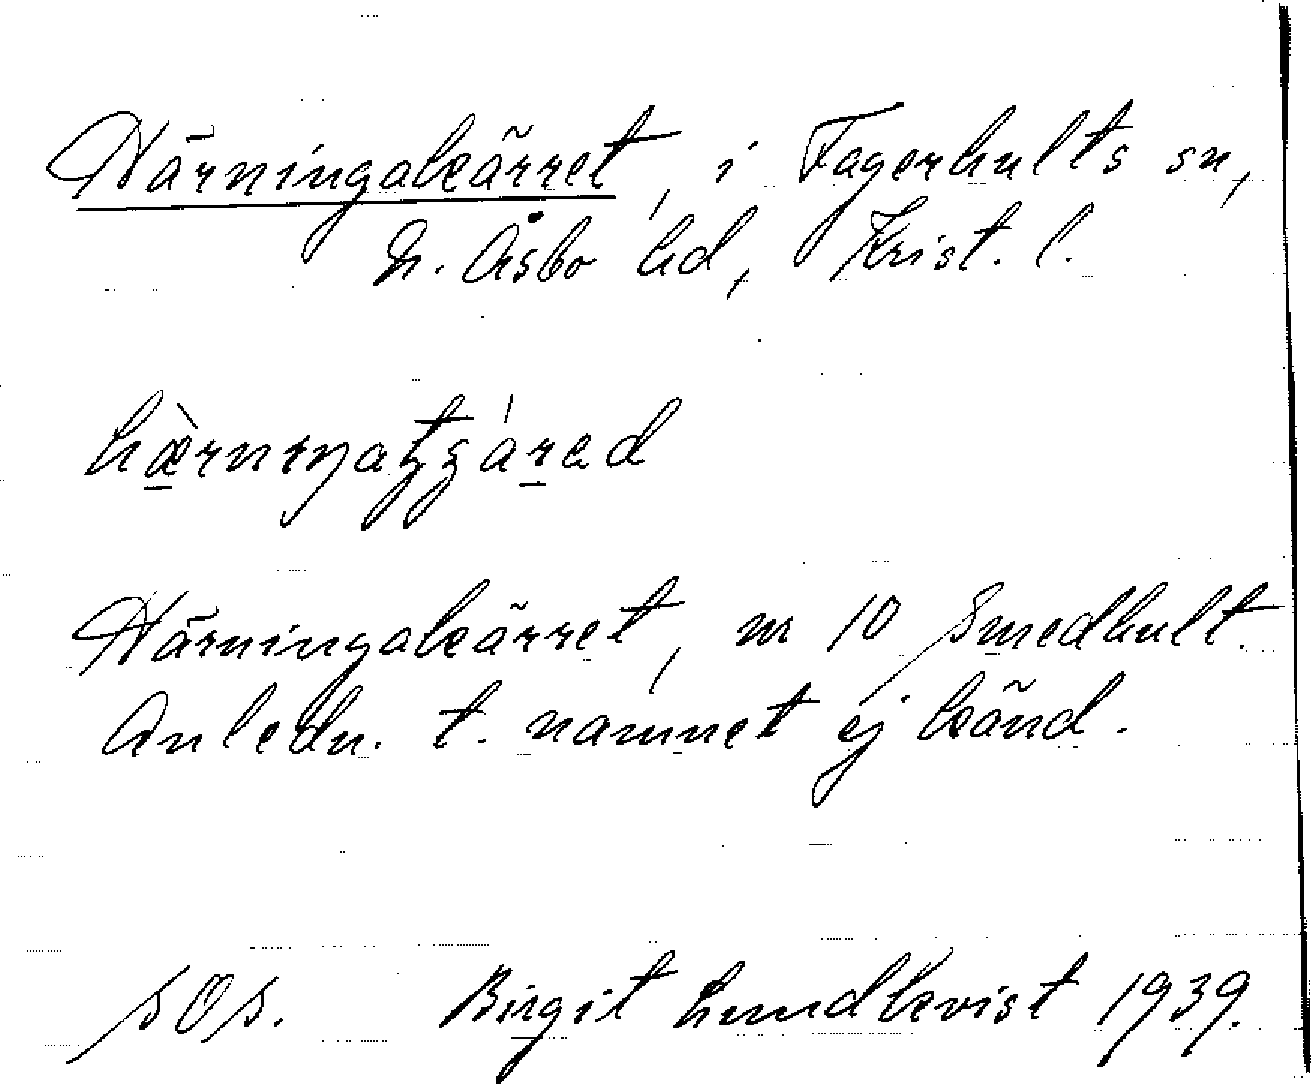 Härningakärret, i Fagerhults sn,
N. Åsbo hd, Krist. l.
Härningakärret, nr 10 Smedhult.
Anledn. t. namnet ej känd.
sOs. Birgit Lundkvist 1939.